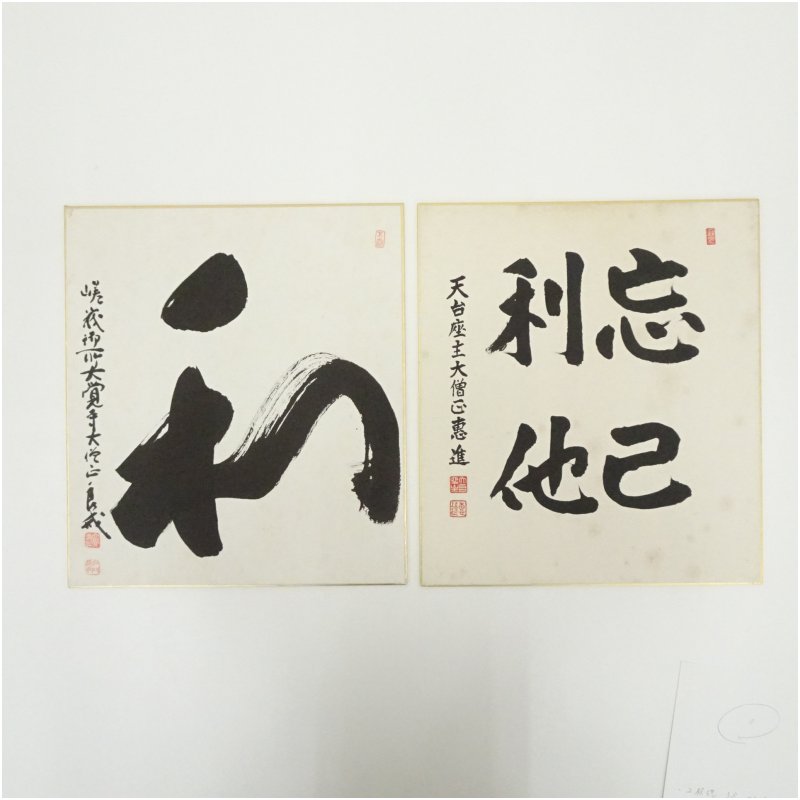 忘己
利他
天台座主大僧正恵進
和
嵯峨御所大覚寺大僧正良戒